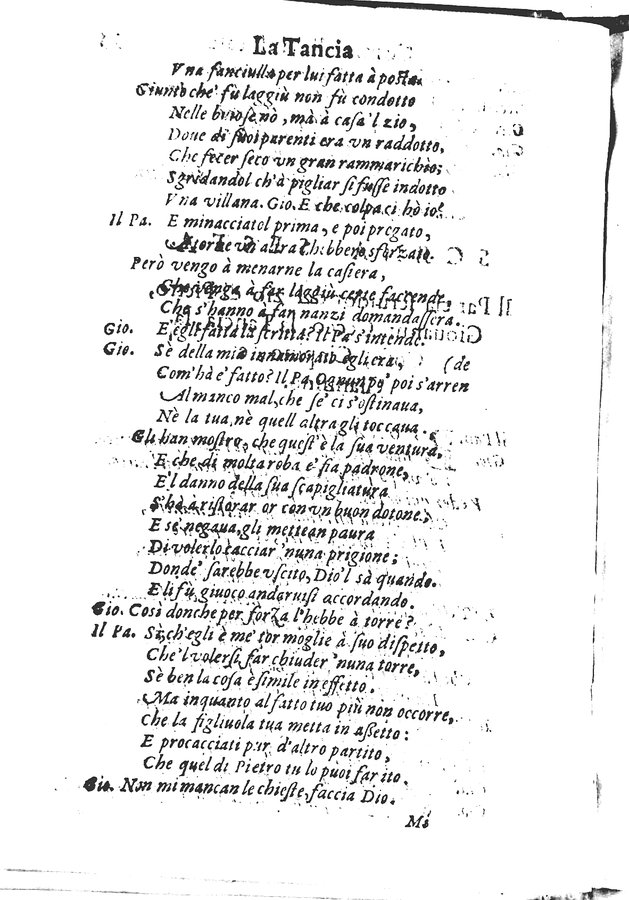 La Tancia
Vna fanciulla per lui fatta à posta.
Giunto che' fù laggiù non fù condotto
Nelle buiose nò, mà à casa 'l zio,
Doue di suoi parenti era vn raddotto,
Che fecer seco vn gran rammarichìo;
Sgridandol ch'à pigliar si fusse indotto
Vna villana. Gio. E che colpa ci hò io?
Il Pa. E minacciatol prima, e poi pregato,
A torne vn altra l'hebbero sforzato.
Però vengo à menarne la casiera,
Che venga à far laggiù certe faccende,
Che s'hanno à far nanzi domandassera.
Gio. E egli fatta la stritta? Il Pa s'intende.
Gio. Sè della mia innamorato egli era, (de
Com'hà e' fatto? Il Pa. Ognun po' poi s'arren
Al manco mal, che se' ci s'ostinaua,
Nè la tua, nè quell altra gli toccaua.
Gli han mostro, che quest'è la sua ventura,
E che di molta roba e' sia padrone,
E'l danno della sua scapigliatura
S'hà à ristorar or con vn buon dotone.
E se negaua, gli mettean paura
Di volerlo cacciar 'nuna prigione;
Donde' sarebbe vscito, Dio'l sà quando.
E li fù giuoco andaruisi accordando.
Gio. Così donche per forza l'hebbe à torre?
Il Pa. Sì, ch'egli è me' tor moglie à suo dispetto,
Che'l volersi far chiuder 'nuna torre,
Sè ben la cosa è simile in effetto.
Ma inquanto al fatto tuo più non occorre,
Che la figliuola tua metta in assetto:
E procacciati pur d'altro partito,
Che quel di Pietro tu lo puoi far ito.
Gio. Non mi mancan le chieste, faccia Dio.
Mi